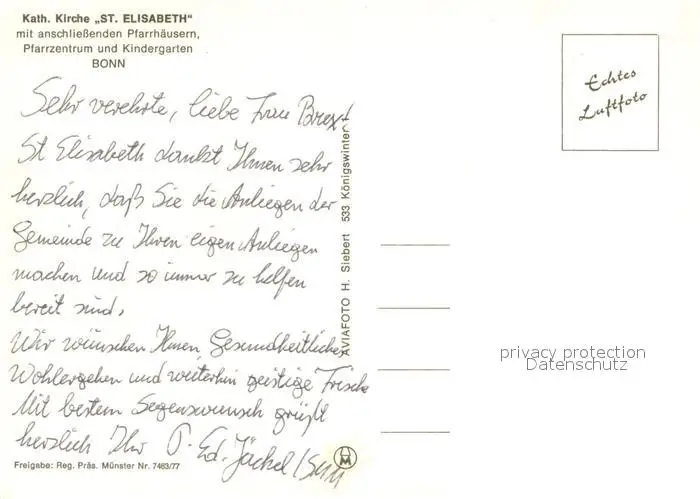 Kath. Kirche „ST. ELISABETH"
mit anschließenden Pfarrhäusern,
Pfarrzentrum und Kindergarten
BONN
Echtes
Luftfoto
Sehr verehrte, liebe Frau
St Elisabeth dankt Ihnen sehr
herzlich, daß Sie die Anliegen der
Gemeinde zu Ihren eigen Anliegen
machen und so immer zu helfen
bereit sind.
Wir wünschen Ihnen, Gesundheitliches
Wohlergehen und weiterhin geistige Frische
Mit bestem Segenswunsch grüßt
herzlich Ihr P. Ed. Jäckel
AVIAFOTO H. Siebert 533 Königswinter
privacy protection
Datenschutz
Freigabe: Reg. Präs. Münster Nr. 7463/77